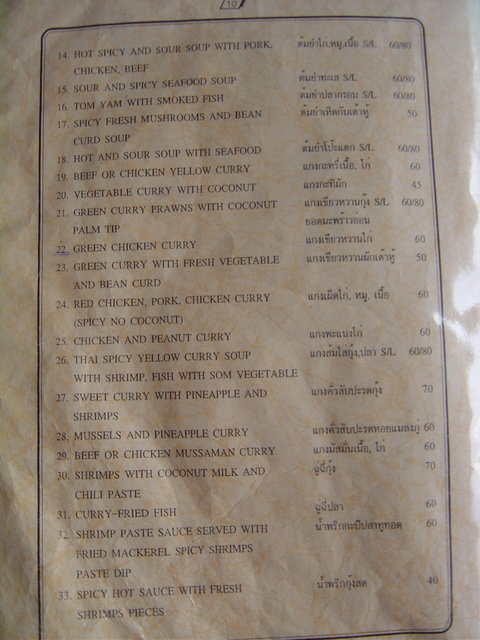 10
14. HOT SPICY AND SOUR SOUP WITH PORK, ต้มยำไก่,หมู,เนื้อ S/L 60/80
CHICKEN, BEEF
15. SOUR AND SPICY SEAFOOD SOUP ต้มยำทะเล S/L 60/80
16. TOM YAM WITH SMOKED FISH ต้มยำปลากรอบ S/L 60/80
17. SPICY FRESH MUSHROOMS AND BEAN ต้มยำเห็ดกับเต้าหู้ 50
CURD SOUP
18. HOT AND SOUR SOUP WITH SEAFOOD ต้มยำโป๊ะแตก S/L 60/80
19. BEEF OR CHICKEN YELLOW CURRY แกงกะหรี่เนื้อ, ไก่ 60
20. VEGETABLE CURRY WITH COCONUT แกงกะทิผัก 45
21. GREEN CURRY PRAWNS WITH COCONUT แกงเขียวหวานกุ้ง S/L 60/80
PALM TIP ยอดมะพร้าวอ่อน
22. GREEN CHICKEN CURRY แกงเขียวหวานไก่ 60
23. GREEN CURRY WITH FRESH VEGETABLE แกงเขียวหวานผักเต้าหู้ 50
AND BEAN CURD
24. RED CHICKEN, PORK, CHICKEN CURRY แกงเผ็ดไก่, หมู, เนื้อ 60
(SPICY NO COCONUT)
25. CHICKEN AND PEANUT CURRY แกงพะแนงไก่ 60
26. THAI SPICY YELLOW CURRY SOUP แกงส้มใส่กุ้ง,ปลา S/L 60/80
WITH SHRIMP, FISH WITH SOM VEGETABLE
27. SWEET CURRY WITH PINEAPPLE AND แกงคั่วสับปะรดกุ้ง 70
SHRIMPS
28. MUSSELS AND PINEAPPLE CURRY แกงคั่วสับปะรดหอยแมลงภู่ 60
29. BEEF OR CHICKEN MUSSAMAN CURRY แกงมัสมั่นเนื้อ, ไก่ 60
30. SHRIMPS WITH COCONUT MILK AND ฉู่ฉี่กุ้ง 70
CHILI PASTE
31. CURRY-FRIED FISH ฉู่ฉี่ปลา 60
32. SHRIMP PASTE SAUCE SERVED WITH น้ำพริกกะปิปลาทูทอด 60
FRIED MACKEREL SPICY SHRIMPS
PASTE DIP
33. SPICY HOT SAUCE WITH FRESH น้ำพริกกุ้งสด 40
SHRIMPS PIECES